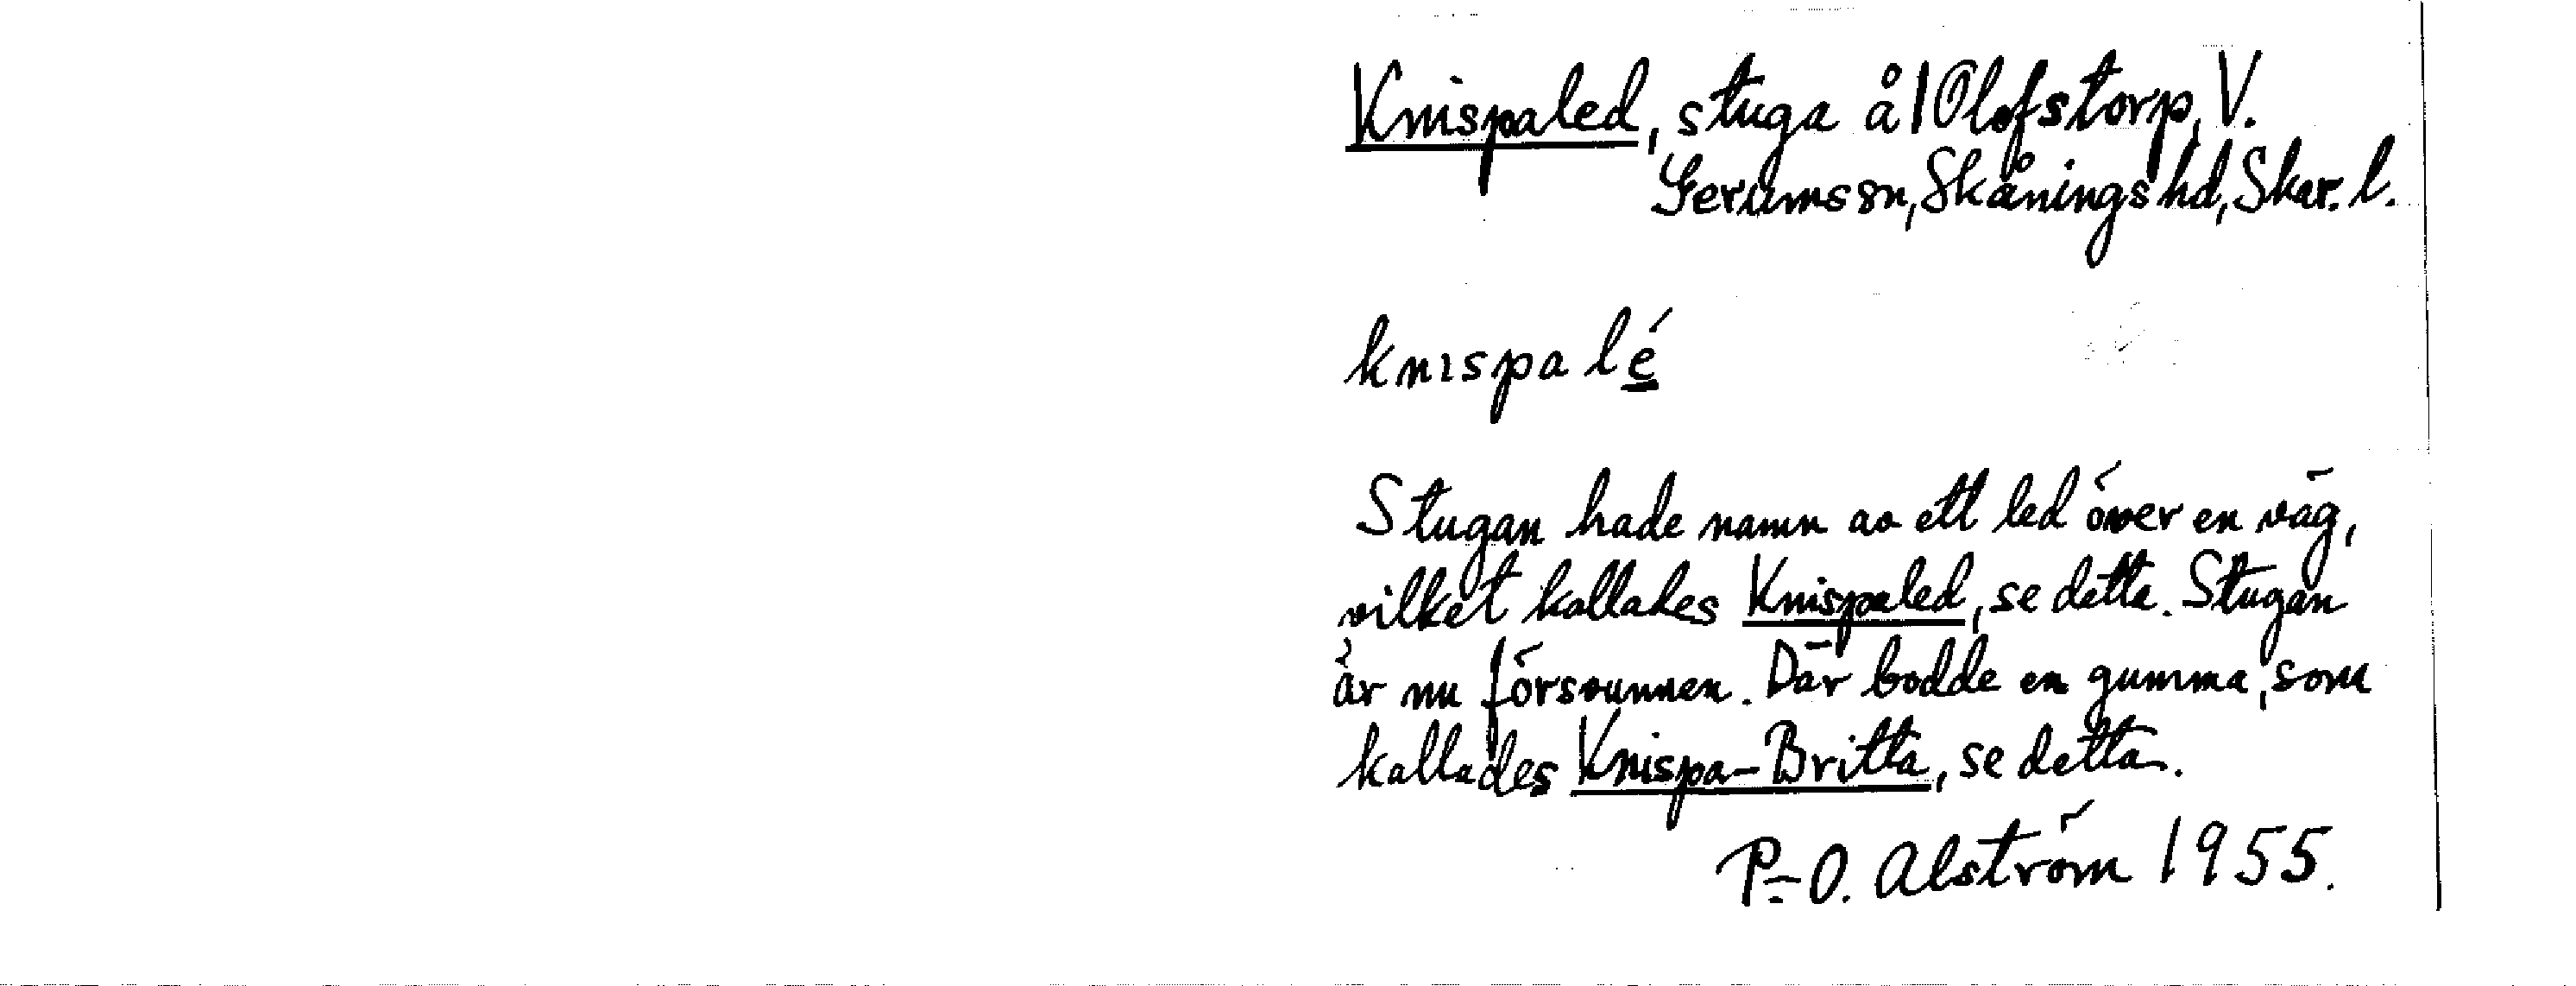 Knispaled, stuga å 1 Olofstorp, V.
Gerums sn, Skånings hd, Skar. l.
knıspa lé
Stugan hade namn av ett led över en väg,
vilket kallades Knispaled, se detta. Stugan
är nu försvunnen. Där bodde en gumma, som
kallades Knispa-Britta, se detta.
P-O. Alström 1955.